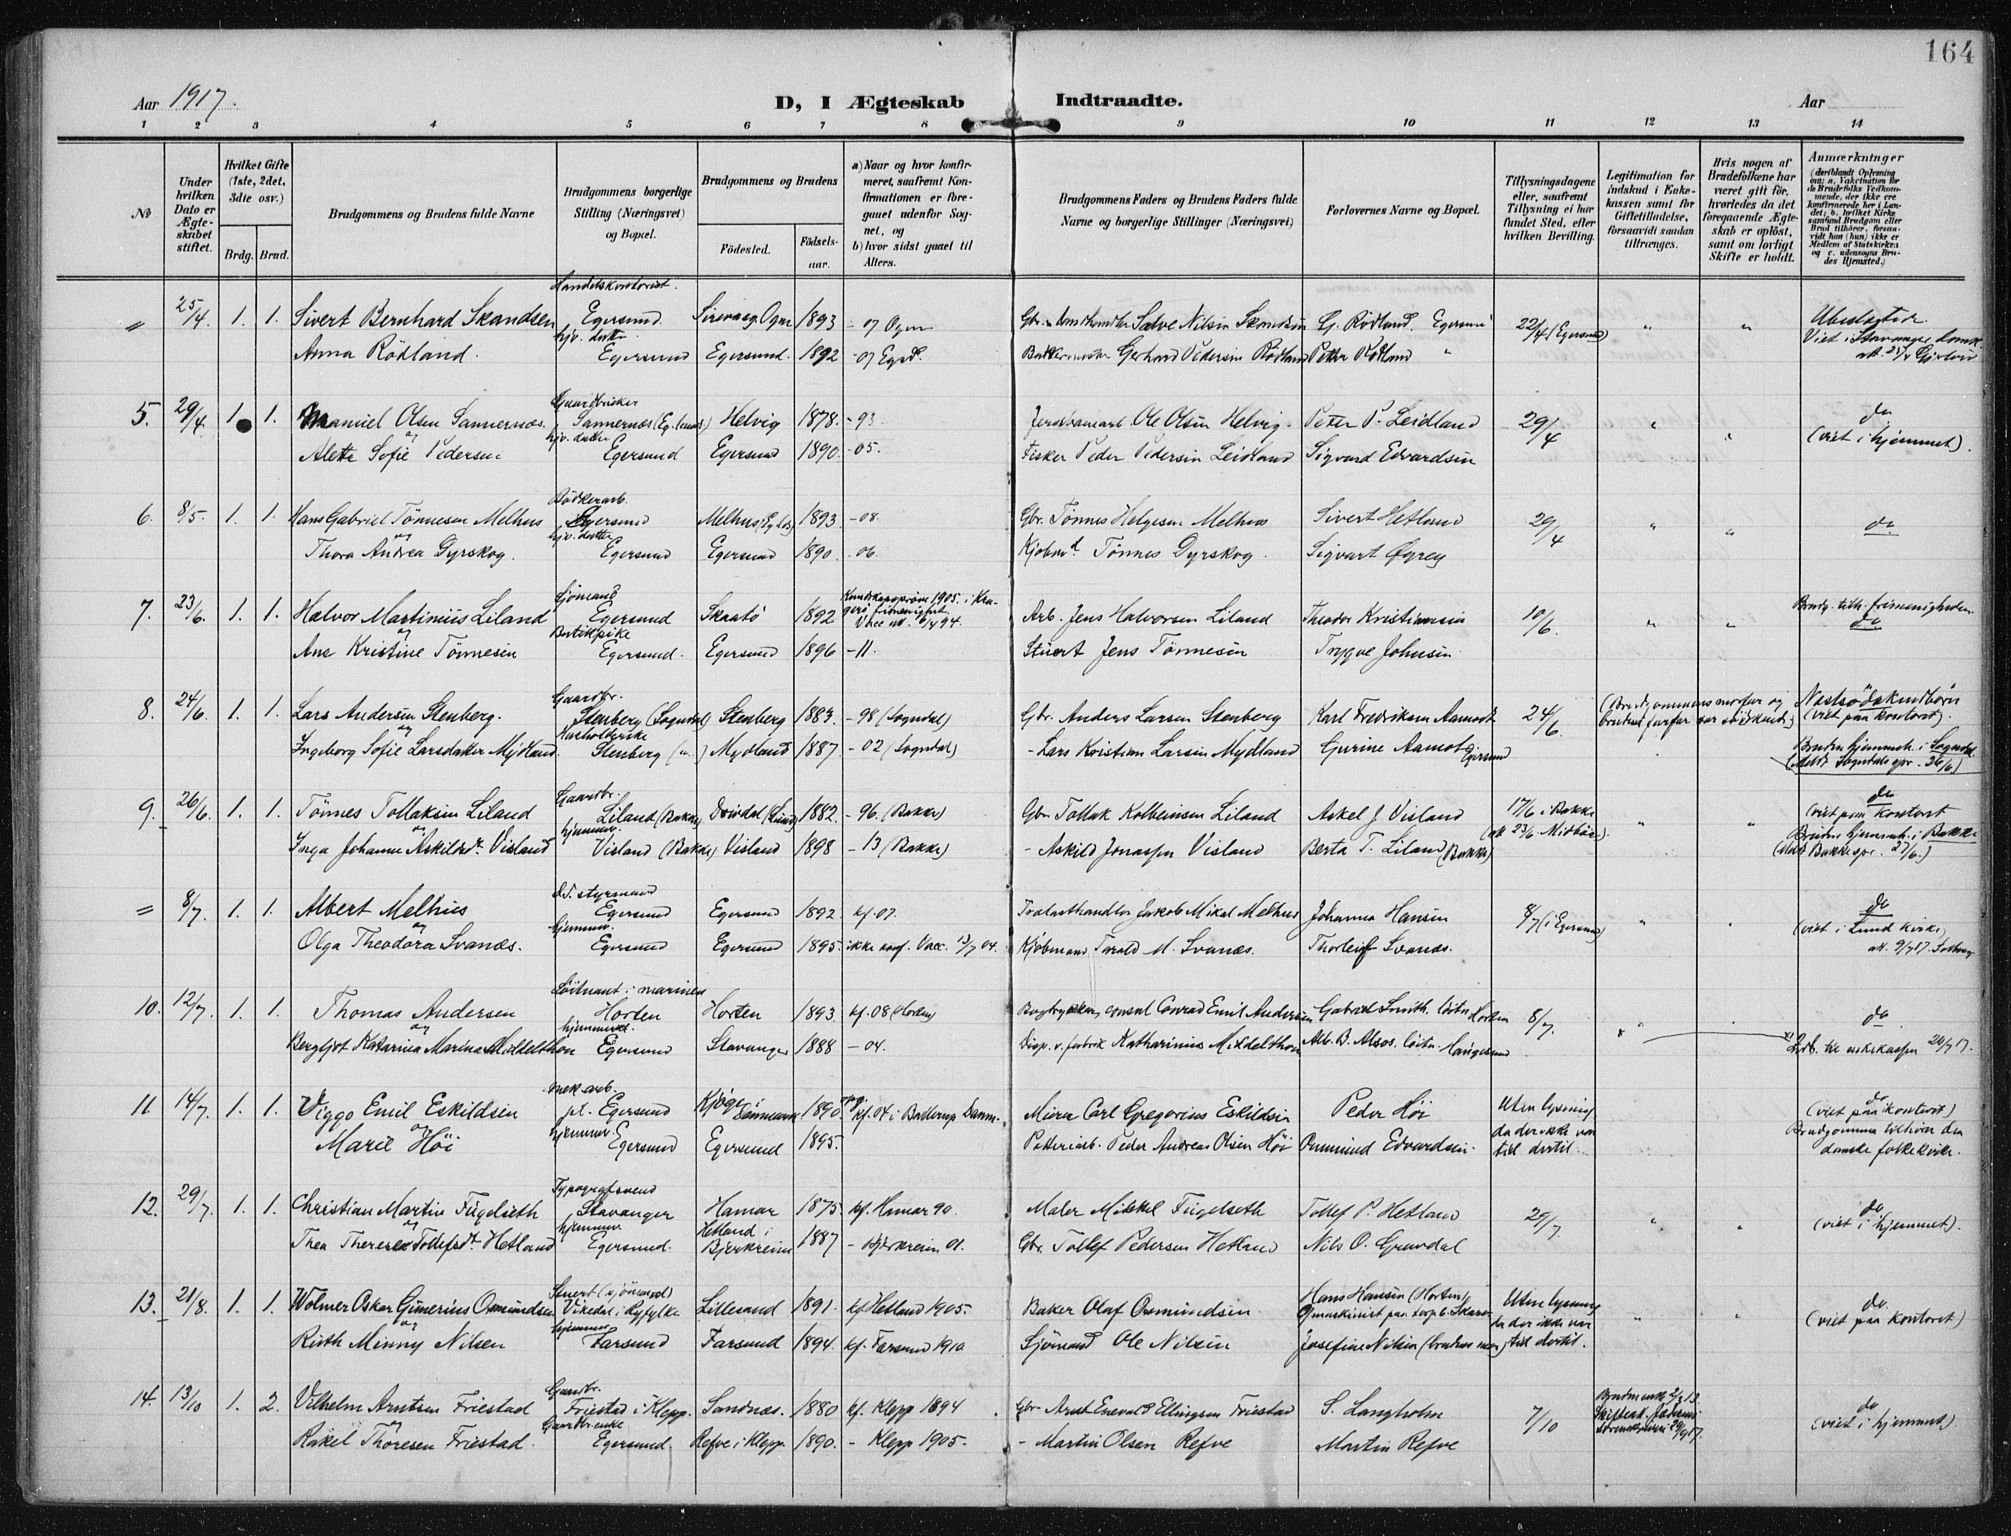 164
Aar 1917.
D, I Ægteskab Indtraadte.
Aar
1 2 3 4 5 6 7 8 9 10 11 12 13 14
No
Under hvilken Dato er Ægteskabet stiftet.
Hvilket Gifte (1ste, 2det, 3die osv.)
Brdg. Brud.
Brudgommens og Brudens fulde Navne
Brudgommens borgerlige Stilling (Næringsvei) og Bopæl.
Brudgommens og Brudens
Fødested.
Fødselsaar.
a) Naar og hvor konfirmeret, saafremt Konfirmationen er foregaaet udenfor Sognet, og
b) hvor sidst gaaet til Alters.
Brudgommens Faders og Brudens Faders fulde Navne og borgerlige Stillinger (Næringsvei)
Forlovernes Navne og Bopæl.
Tillysningsdagene eller, saafremt Tillysning ei har fundet Sted, efter hvilken Bevilling.
Legitimation for Indskud i Enkekassen samt for Giftetilladelse, forsaavidt saadan tiltrænges.
Hvis nogen af Brudefolkene har været gift før, hvorledes da det foregaaende Ægteskab er opløst, samt om lovligt Skifte er holdt.
Anmærkninger
Handelskontorist.
" 25/4. 1. 1. Sivert Bernhard Skandsen Egersund Sirevaag. Ogn 1893 - 07 Ogn Salve Nilsen Skandsen G. Rödland, Egersund 22/4 (Egersund) " " Ubeslagtede
hjv. datter
Anna Rödland. Egersund Egersund. 1892 - 07 Egsd. Gerhard Pedersen Rödland Petter Rödland " Viet i Stavanger
Gaardbruker
5. 29/4. 1. 1. Manuel Olsen Sannernæs. Sannernæs Helvig 1878. - 93 Ole Olsen Helvig. Peter P. Leidland 29/4 " " do
og hjv. datter
Alette Sofie Pedersen Egersund Egersund 1890. - 05. Fisker Peder Pedersen Leidland Sigvard Edvardsen (viet i hjemmet).
Bödkerarb.
6. 8/5. 1. 1. Hans Gabriel Tönnesen Melhus Egersund Melhus 1893 - 08. Gbr. Tönnes Helgesen Melhus Sivert Hetland 29/4 " " do
og hjv. datter
Thora Andrea Dyrskog. Egersund Egersund 1890. - 06. Kjöbmd. Tönnes Dyrskog. Sigvart Øgrey
Sjömand
7. 23/6. 1. 1. Halvor Martinius Liland Egersund Skaatö 1892 Kundskapspröve 1905. i Kragerö frimenighet Vacc att. 94 Arb. Jens Halvorsen Liland Theodor Kristiansen 10/6. " " Brudg. tilh. frimenigheden do
og Butikpike
Ane Kristine Tönnesen Egersund. Egersund 1896 - 11. Stuert Jens Tönnesen Trygve Johnsen
Gaardbr.
8. 24/6. 1. 1. Lars Andersen Stenberg. Stenberg (Sogndal) Stenberg 1883. - 98 (Sogndal) Gbr. Anders Larsen Stenberg Karl Fredriksen Aamodt 24/6 (Brudgommens morfar og brudens farfar var södskend) Næstsödskendbörn (viet paa kontoret).
og Husholderske
Ingeborg Sofie Larsdatter Mydland Stenberg (" ) Mydland 1887. - 02 (Sogndal) - Lars Kristian Larsen Mydland Gurine Aamot Egersund Bruden hjemmeh. i Sogndal (Meldt Sogndals spr. 26/6)
Gaardbr.
9. 26/6. 1. 1. Tönnes Tollaksen Liland Liland (Bakke) (Lund) 1882. - 96. (Bakke) Gbr. Tollak Kolbeinsen Liland Askel J. Visland 17/6 i Bakke " " do (viet paa kontoret
og hjemmev.
Inga Johanne Askildsdr. Visland Visland (Bakke) Visland 1898 - 13 (Bakke) - Askild Jonassen Visland Berta T. Liland (Bakke) (att 23/6 Midböe). Bruden hjemmeh. i Bakke (Meldt Bakke spr. 27/6.)
D.S. styrmand
" 8/7. 1. 1. Albert Melhus Egersund Egersund 1892. kf. 07. Trælasthandler Jakob Mikal Melhus Johanna Hansen 8/7 (i Egersund) " " do
og hjemmev.
Olga Theodora Svanæs. Egersund Egersund 1895. ikke konf. Vacc. 13/7 04. Kjöbmand Torald M. Svanæs. Thorleif Svanæs. (viet i Lund kirke, att. 9/7 17.
Löitnant i marinen
10. 12/7. 1. 1. Thomas Andersen Horten Horten 1893. kf. 08 (Horten) consul Conrad Emil Andersen Gabriel Smith. löitn. Horten 8/7. do
og hjemmev.
Bergljot Katarina Marina Middelthon Egersund Stavanger 1888 - 04. Disp. v. fabrik Katharinius Middelthon Alb. B. Alsos. löitn. Haugesund
mek. arb.
11. 14/7. 1. 1. Viggo Emil Eskildsen pt. Egersund Kjöge i Danmark 1890 kf. 04 i Danm. Carl Gregorius Eskildsen Peder Höi Uten lysning do (viet paa kontoret)
og hjemmev.
Marie Höi Egersund Egersund 1895. Potteriarb. Peder Andreas Olsen Höi Osmund Edvardsen. da der ikke var tid dertil. Brudgommen tilhörer den danske folkekirke.
Typografsvend
12. 29/7. 1. 1. Christian Martin Fügelseth Stavanger Hamar 1875. kf. Hamar 90. Maler Mikkel Fügelseth Tollef P. Hetland 29/7. " " do (viet i hjemmet).
og hjemmev.
Thea Therese Tollefsdr. Hetland Egersund. Hetland i Bjerkreim 1887 - Bjerkreim 01. Gbr. Tollef Pedersen Hetland Nils O. Gravdal
Stuert (sjömand)
13. 21/8. 1. 1. Wolmer Oskar Gunerius Osmundsen Vikedal i Ryfylke Lillesand 1891. kf. Hetland 1905. Baker Olaf Osmundsen Hans Hansen (Horten) Uten lysning " " do. (viet paa kontoret)
og hjemmev.
Ruth Minny Nilsen Farsund Farsund 1894. kf. Farsund 1910 Sjömand Ole Nilsen Josefine Nilsen (brudens mor) da der ikke var tid dertil.
Gaardbr.
14. 13/10 1. 2. Vilhelm Arntsen Friestad Friestad i Klepp. Sandnæs. 1880 kf. Klepp 1894 Gbr. Arnt Enevald Ellingsen Friestad S. Langholm 7/10 do (viet i hjemmet)
og Gaardbr. enke
Rakel Thoresen Friestad. Egersund. Refve i Klepp. 1890. - Klepp 1905. - Martin Olsen Refve Martin Refve